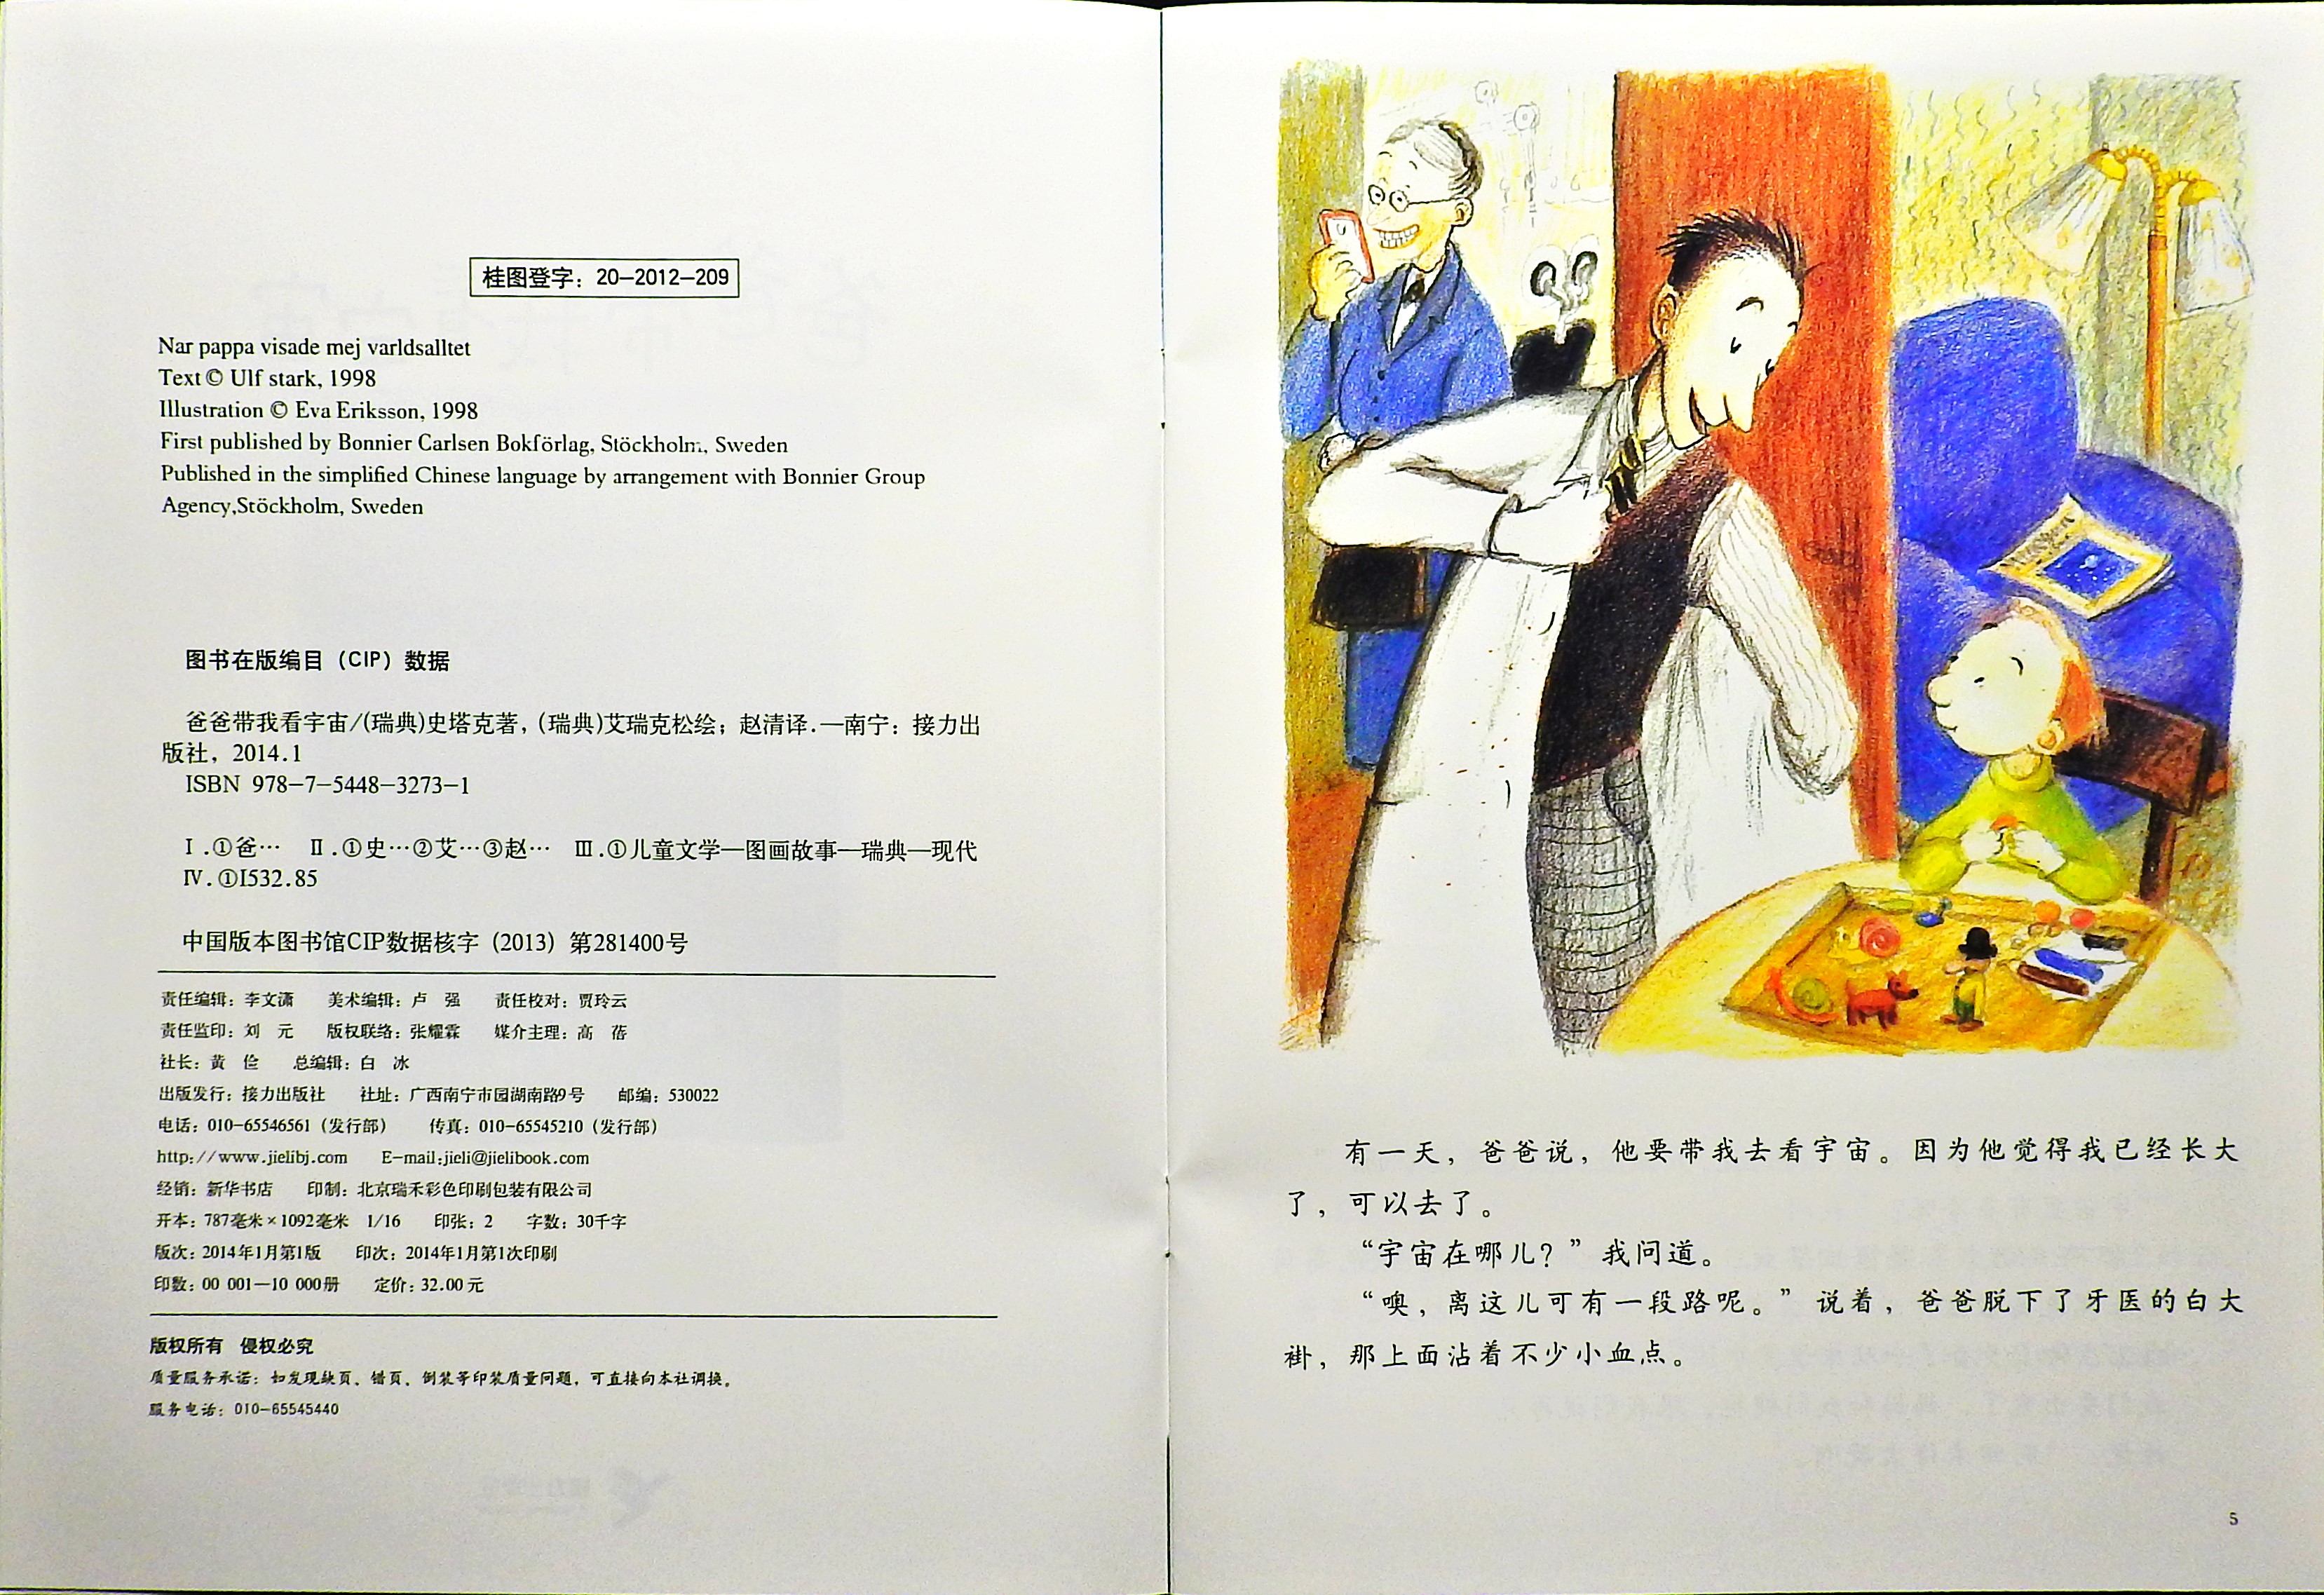 桂图登字：20-2012-209
Nar pappa visade mej varldsalltet
Text © Ulf stark, 1998
Illustration © Eva Eriksson, 1998
First published by Bonnier Carlsen Bokförlag, Stöckholm, Sweden
Published in the simplified Chinese language by arrangement with Bonnier Group
Agency,Stöckholm, Sweden
图书在版编目（CIP）数据
爸爸带我看宇宙/(瑞典)史塔克著，(瑞典)艾瑞克松绘；赵清译.—南宁：接力出
版社，2014.1
ISBN 978-7-5448-3273-1
Ⅰ.①爸… Ⅱ.①史…②艾…③赵… Ⅲ.①儿童文学—图画故事—瑞典—现代
Ⅳ.①I532.85
中国版本图书馆CIP数据核字（2013）第281400号
责任编辑：李文潇 美术编辑：卢 强 责任校对：贾玲云
责任监印：刘 元 版权联络：张耀霖 媒介主理：高 蓓
社长：黄 俭 总编辑：白 冰
出版发行：接力出版社 社址：广西南宁市园湖南路9号 邮编：530022
电话：010-65546561（发行部） 传真：010-65545210（发行部）
http://www.jielibj.com E-mail:jieli@jielibook.com
经销：新华书店 印制：北京瑞禾彩色印刷包装有限公司
开本：787毫米×1092毫米 1/16 印张：2 字数：30千字
版次：2014年1月第1版 印次：2014年1月第1次印刷
印数：00 001—10 000册 定价：32.00元
版权所有 侵权必究
质量服务承诺：如发现缺页、错页、倒装等印装质量问题，可直接向本社调换。
服务电话：010-65545440
有一天，爸爸说，他要带我去看宇宙。因为他觉得我已经长大
了，可以去了。
“宇宙在哪儿？”我问道。
“噢，离这儿可有一段路呢。”说着，爸爸脱下了牙医的白大
褂，那上面沾着不少小血点。
5